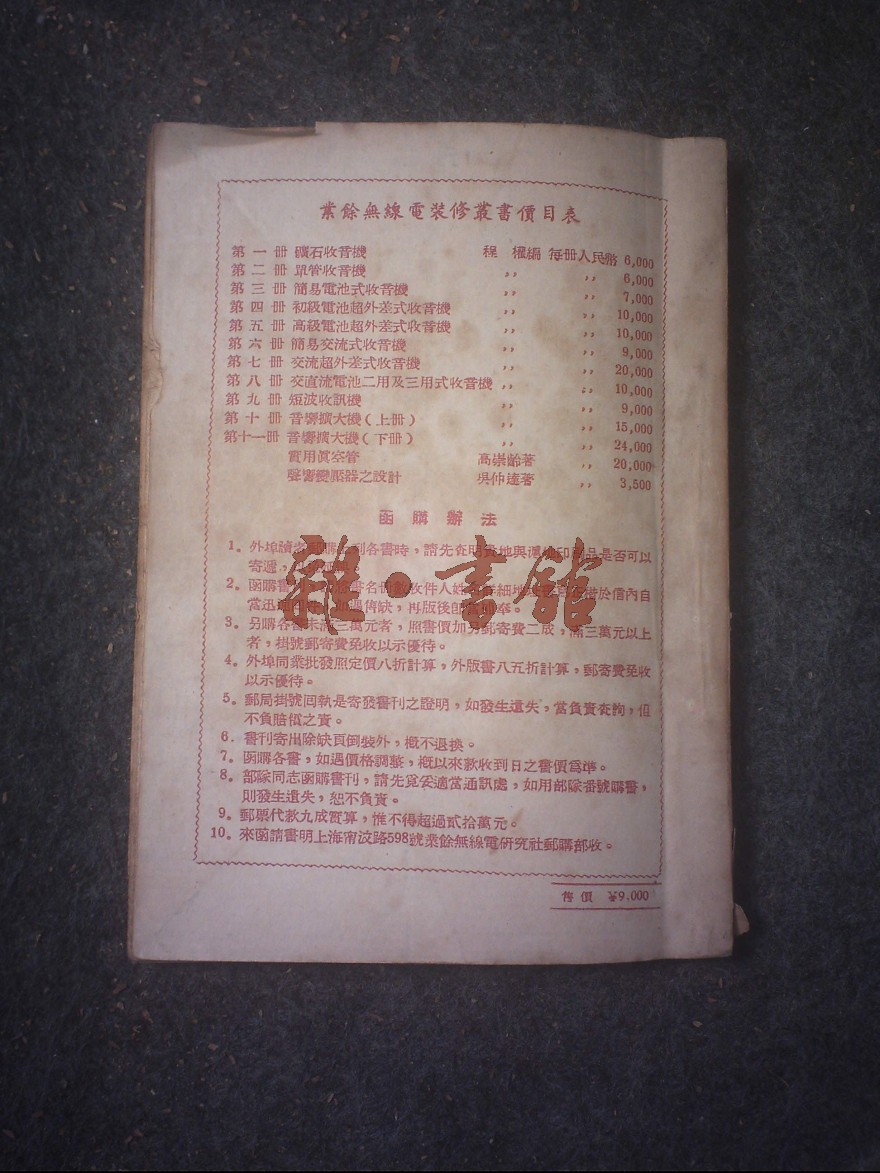 業餘無線電裝修叢書價目表
第一冊 礦石收音機 程權編 每冊人民幣 6,000
第二冊 單管收音機 ,, ,, 6,000
第三冊 簡易電池式收音機 ,, ,, 7,000
第四冊 初級電池超外差式收音機 ,, ,, 10,000
第五冊 高級電池超外差式收音機 ,, ,, 10,000
第六冊 簡易交流式收音機 ,, ,, 9,000
第七冊 交流超外差式收音機 ,, ,, 20,000
第八冊 交直流電池二用及三用式收音機 ,, ,, 10,000
第九冊 短波收訊機 ,, ,, 9,000
第十冊 音響擴大機(上冊) ,, ,, 15,000
第十一冊 音響擴大機(下冊) ,, ,, 24,000
實用眞空管 高崇齡著 ,, 20,000
聲響變壓器之設計 吳仲達著 ,, 3,500
函購辦法
1. 外埠讀者郵購上列各書時,請先查明貴地與滬地印刷品是否可以
寄遞,
2. 函購書刊,書名冊數收件人姓名詳細地址於信內自
當迅速售缺,再版後卽奉。
3. 另購各書未滿三萬元者,照書價加另郵寄費二成,滿三萬元以上
者,掛號郵寄費免收以示優待。
4. 外埠同業批發照定價八折計算,外版書八五折計算,郵寄費免收
以示優待。
5. 郵局掛號回執是寄發書刊之證明,如發生遺失,當負責查詢,但
不負賠償之責。
6. 書刊寄出除缺頁倒裝外,槪不退換。
7. 函購各書,如遇價格調整,槪以來款收到日之書價爲準。
8. 部隊同志函購書刊,請先覓妥適當通訊處,如用部隊番號購書,
則發生遺失,恕不負責。
9. 郵票代款九成實算,惟不得超過貳拾萬元。
10. 來函請書明上海甯波路598號業餘無線電研究社郵購部收。
雜·書館
售價 ¥9,000